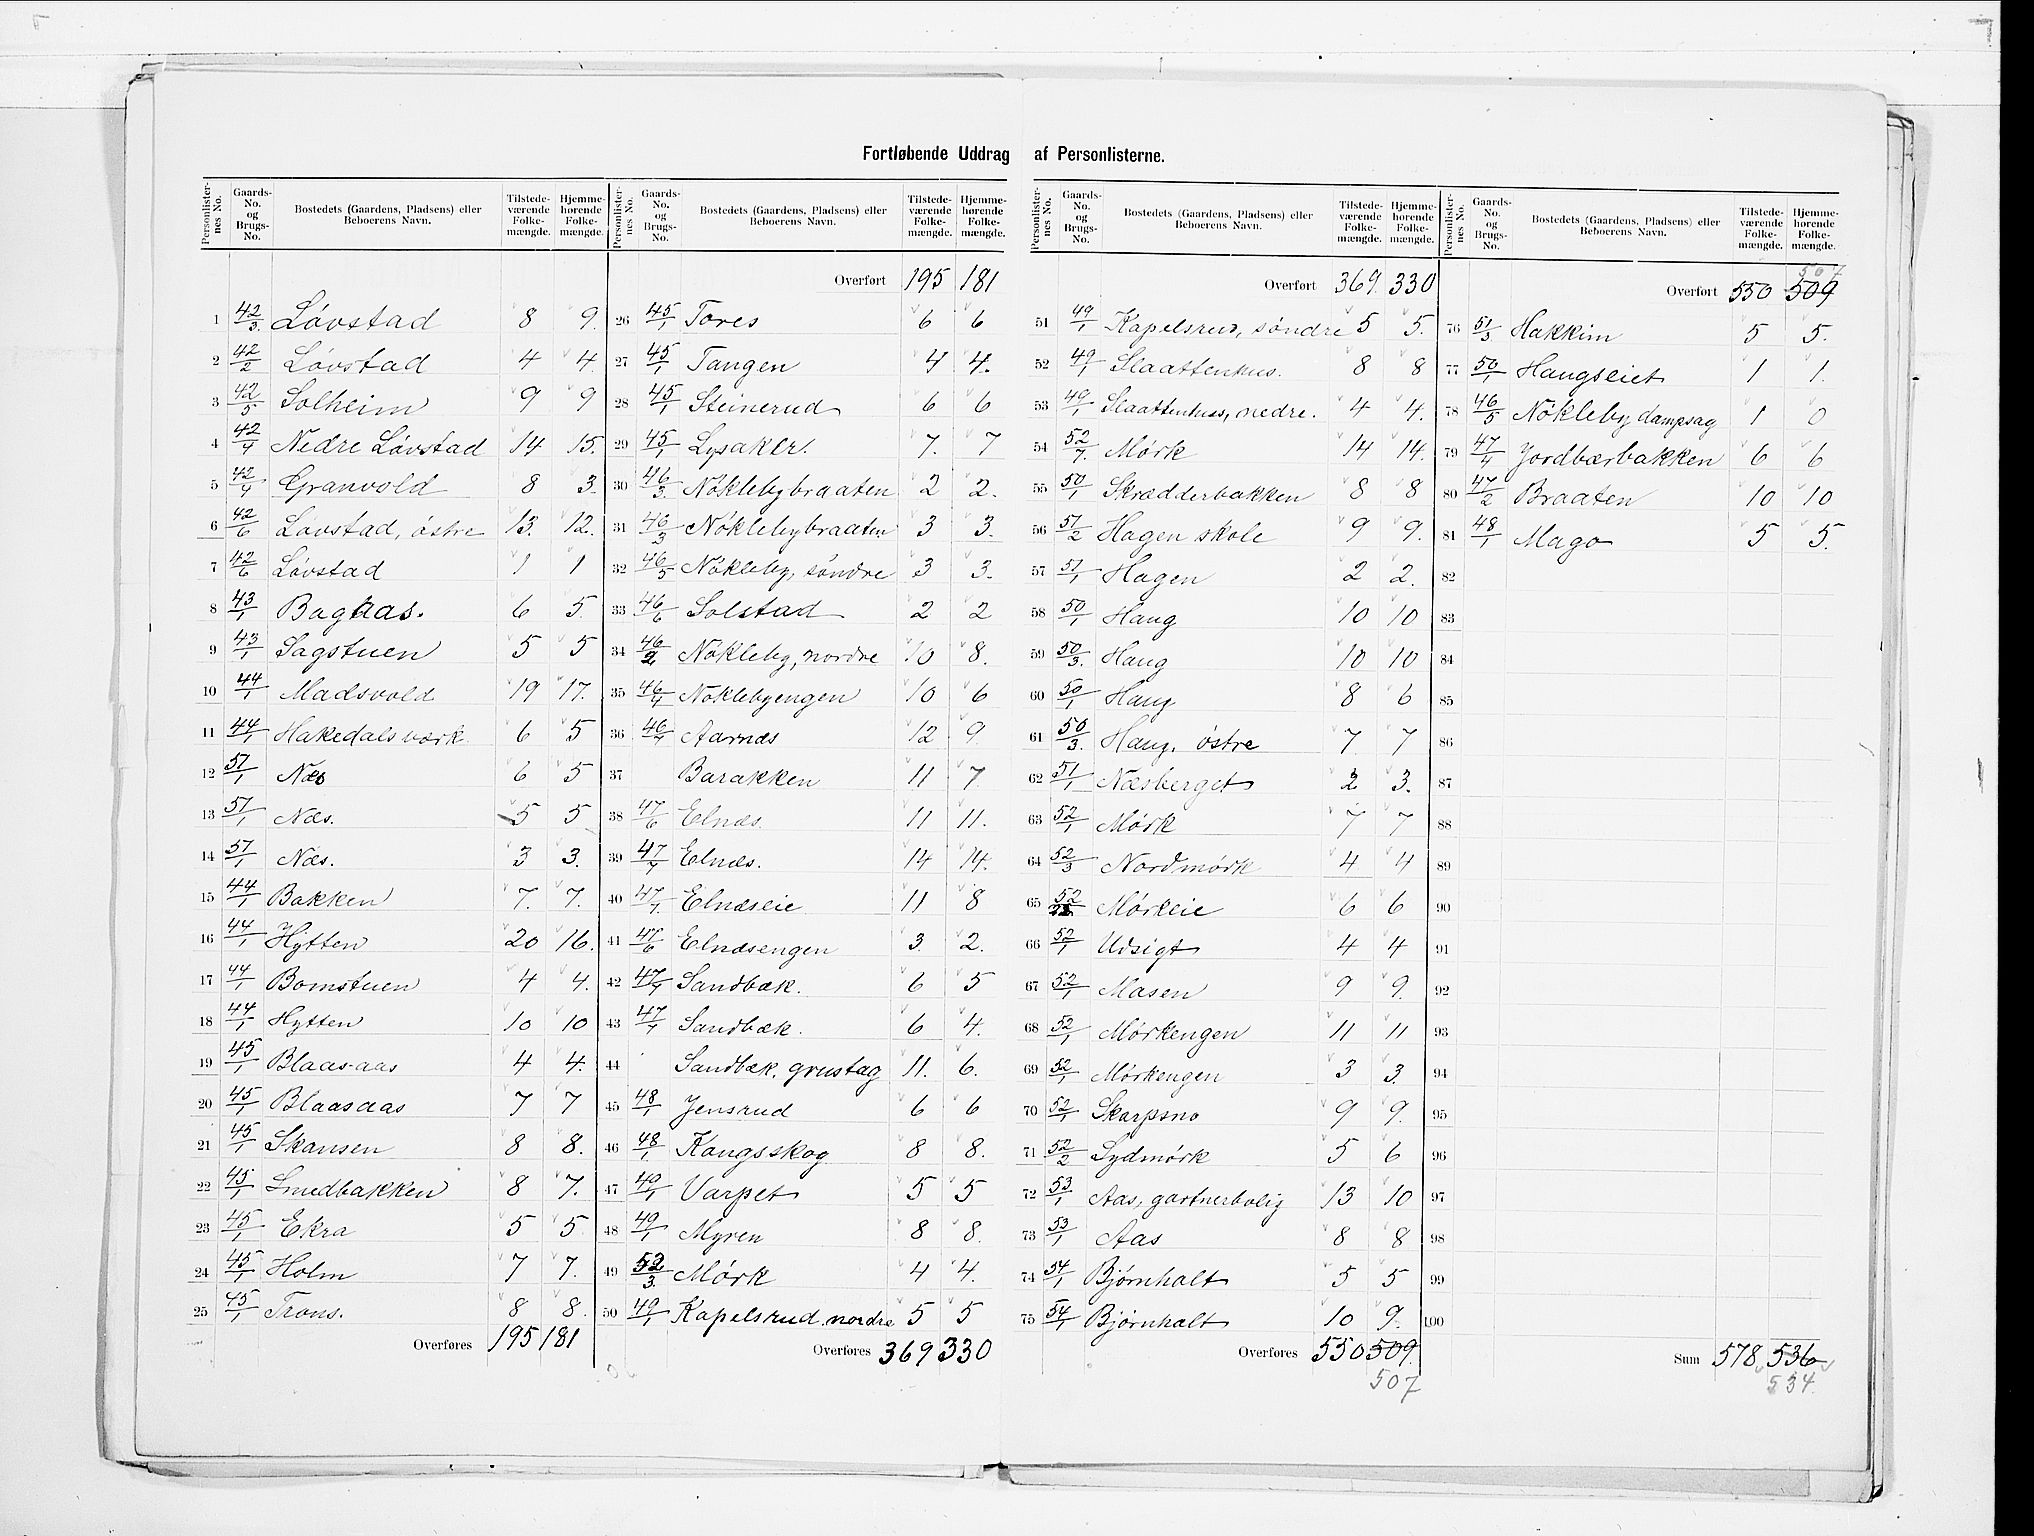 Fortløbende Uddrag af Personlisterne.
Personlisternes No. Gaards-No. og Brugs-No. Bostedets (Gaardens, Pladsens) eller Beboerens Navn. Tilstedeværende Folkemængde. Hjemmehørende Folkemængde.
1 42/3 Løvstad 8 9.
2 42/2 Løvstad 4 4
3 42/5 Solheim 9 9
4 42/4 Nedre Løvstad 14 15.
5 42/4 Granvold 8 3.
6 42/6 Løvstad, østre 13. 12.
7 42/6 Løvstad 1 1
8 43/1 Bagaas. 6 5.
9 43/1 Sagstuen 5 5
10 44/1 Madsvold 19 17.
11 44/1 Hakedals værk 6 5
12 51/1 Næs 6 5
13 51/1 Næs. 5 5
14 51/1 Næs. 3 3.
15 44/1 Bakken 7. 7.
16 44/1 Hytten 20 16.
17 44/1 Bomstuen 4 4.
18 44/1 Hytten 10 10
19 45/1 Blaas-aas 4 4.
20 45/1 Blaasaas 7 7
21 45/1 Skansen 8 8.
22 45/1 Smedbakken 8 7.
23 45/1 Ekra 5 5
24 45/1 Holm 7 7.
25 45/1 Trons. 8 8.
Overføres 195 181
Personlisternes No. Gaards-No. og Brugs-No. Bostedets (Gaardens, Pladsens) eller Beboerens Navn. Tilstedeværende Folkemængde. Hjemmehørende Folkemængde.
Overført 195 181
26 45/1 Tores 6 6
27 45/1 Tangen 4 4.
28 45/1 Steinerud 6 6
29 45/1 Lysaker. 7. 7
30 46/3 Nøklebybraaten 2 2.
31 46/3 Nøklebybraaten 3 3.
32 46/5 Nøkleby, søndre 3 3.
33 46/6 Solstad 2 2
34 46/2 Nøkleby, nordre 10 8.
35 46/4 Nøklebyengen 10 6
36 46/4 Aarnæs 12 9.
37 Barakken 11 7.
38 47/6 Elnæs. 11 11.
39 47/7 Elnæs. 14 14.
40 47/7. Elnæseie 11 8
41 47/6 Elnæsengen 3. 2.
42 47/4 Sandbæk. 6 5
43 47/1 Sandbæk. 6 4.
44 Sandbæk, grustag 11. 6.
45 48/1 Jensrud 6 6
46 48/1 Kongsskog 8 8.
47 49/1 Varpet 5 5
48 49/1 Myren 8 8.
49 52/3. Mørk 4 4.
50 49/1 Kapelsrud. nordre 5 5
Overføres 369 330
Personlisternes No. Gaards-No. og Brugs-No. Bostedets (Gaardens, Pladsens) eller Beboerens Navn. Tilstedeværende Folkemængde. Hjemmehørende Folkemængde.
Overført 369. 330
51 49/1 Kapelsrud, søndre 5 5.
52 49/1 Slaattenhus. 8 8
53 49/1 Slaattenhus, nedre. 4 4.
54 52/7. Mørk 14 14.
55 50/1 Skrædderbakken 8 8
56 51/2 Hagen skole 9 9.
57 51/1 Hagen 2 2.
58 50/1 Haug 10 10
59 50/3. Haug 10 10
60 50/1 Haug 8 6
61 50/3. Haug, østre 7 7
62 51/1 Næsberget 2 3.
63 52/1 Mørk 7 7
64 52/3 Nordmørk 4 4
65 52 Mørkeie 6 6
66 52/1 Udsigt 4 4
67 52/1 Masen 9 9.
68 52/1 Mørkengen 11 11
69 52/1 Mørkengen 3 3.
70 52/1 Skarpsno 9 9.
71 52/2 Sydmørk 5 6
72 53/1 Aas, gartnerbolig 13 10
73 53/1 Aas 8 8
74 54/1 Bjørnholt 5 5
75 54/1 Bjørnholt 10 9.
Overføres 550 509.
507
Personlisternes No. Gaards-No. og Brugs-No. Bostedets (Gaardens, Pladsens) eller Beboerens Navn. Tilstedeværende Folkemængde. Hjemmehørende Folkemængde.
507
Overført 550 509
76 51/3 Hakkim 5 5.
77 50/1 Haugseiet 1 1.
78 46/5 Nøkleby dampsag 1 0
79 47/4 Jordbærbakken 6 6
80 47/2 Braaten 10 10
81 48/1 Mago 5 5.
82
83
84
85
86
87
88
89
90
91
92
93
94
95
96
97
98
99
100
Sum 578 536
534.